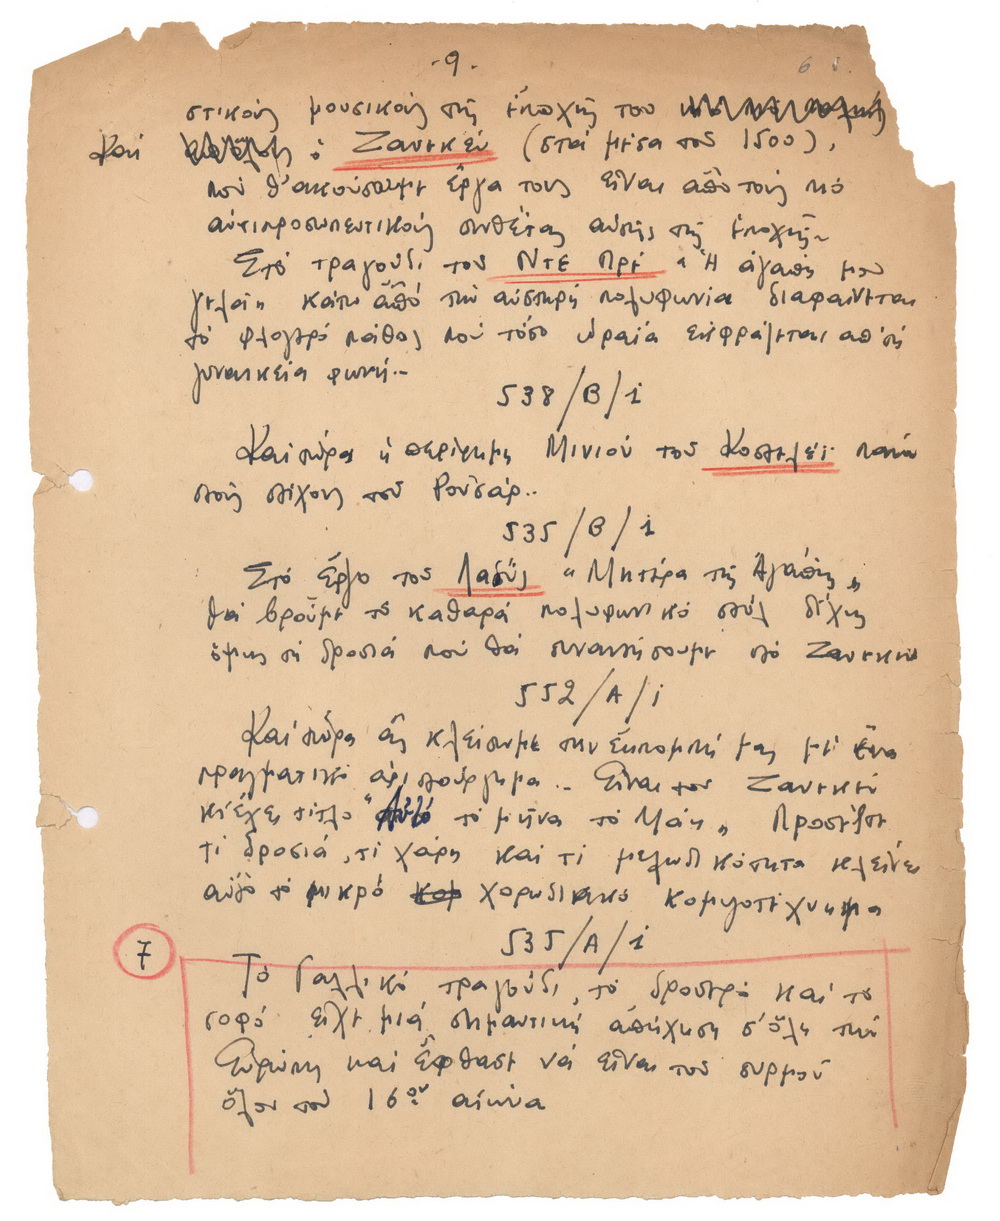 -9.
στικούς μουσικούς τῆς ἐποχῆς του
καί ὁ Ζανεκέν (στά μέσα τοῦ 1500),
πού θ' ἀκούσωμε ἔργα τους εἶναι ἀπό τούς πιό
ἀντιπροσωπευτικούς συνθέτας αὐτῆς τῆς ἐποχῆς.-
Στό τραγούδι τοῦ Ντέ Πρέ "Ἡ ἀγάπη μου
γελάει" κάτω ἀπό τήν αὐστηρή πολυφωνία διαφαίνεται
τό φλογερό πάθος πού τόσο ὡραία ἐκφράζεται ἀπ' τή
γυναικεία φωνή.-
538/Β/1
Καί τώρα ἡ περίφημη Μινιόν τοῦ Κοστελέϊ πάνω
στούς στίχους τοῦ Ρονσάρ..
535/Β/1
Στό ἔργο τοῦ Λασύς "Μητέρα τῆς Ἀγάπης"
θά βροῦμε τό καθαρά πολυφωνικό στύλ δίχως
ὅμως τή δροσιά πού θά συναντήσουμε στό Ζανεκέν
552/Α/1
Καί τώρα ἄς κλείσωμε τήν ἐκπομπή μας μέ ἕνα
πραγματικό ἀριστούργημα.. Εἶναι τοῦ Ζανεκέν
κι ἔχει τίτλο "Αὐτό τό μῆνα τό Μάη" Προσέξτε
τί δροσιά, τί χάρη καί τί μελωδικότητα κλείνει
αὐτό τό μικρό χορωδιακό κομψοτέχνημα
535/Α/1
7
Τό Γαλλικό τραγούδι, τό δροσερό καί τό
σοφό εἶχε μιά σημαντική ἀπήχηση σ' ὅλη τήν
Εὐρώπη καί ἔφθασε νά εἶναι τοῦ συρμοῦ
ὅλον τόν 16ον αἰώνα